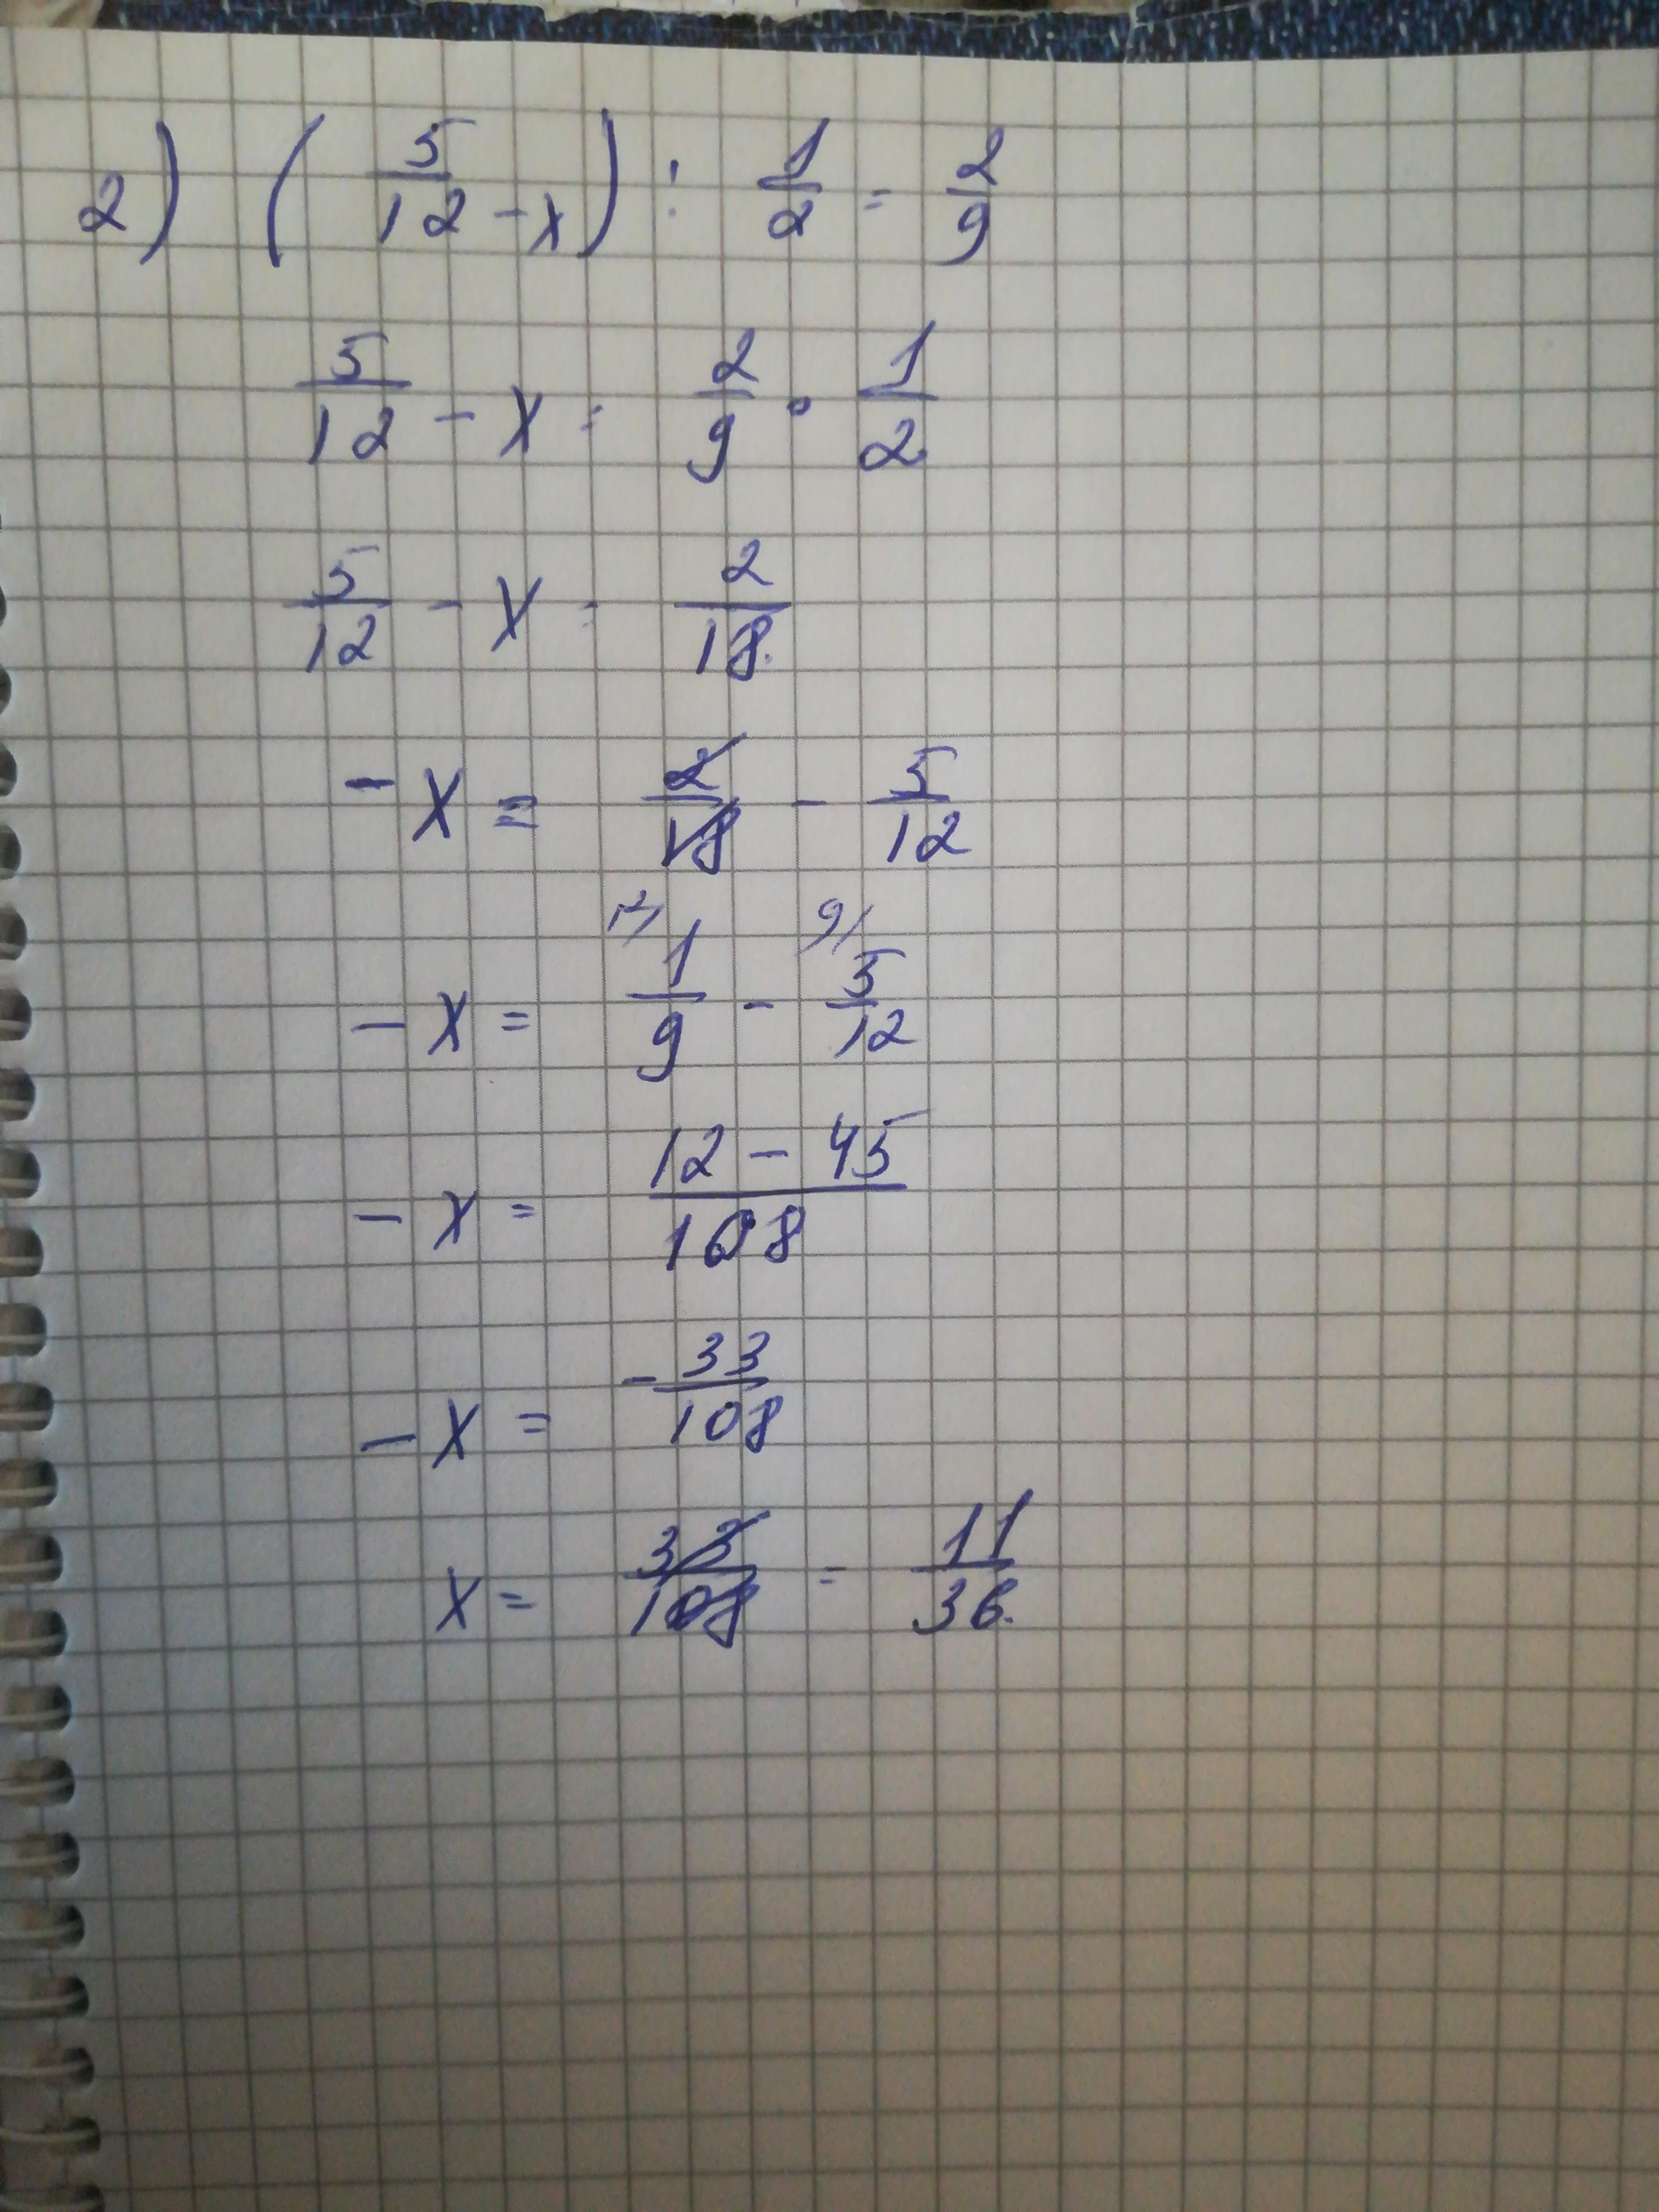 2) (5/12 - x) : 1/2 = 2/9
5/12 - x = 2/9 · 1/2
5/12 - x = 2/18
- x = 2/18 - 5/12
- x = 12/ 1/9 - 9/ 5/12
- x = (12 - 45)/108
- x = - 33/108
x = 33/108 = 11/36.